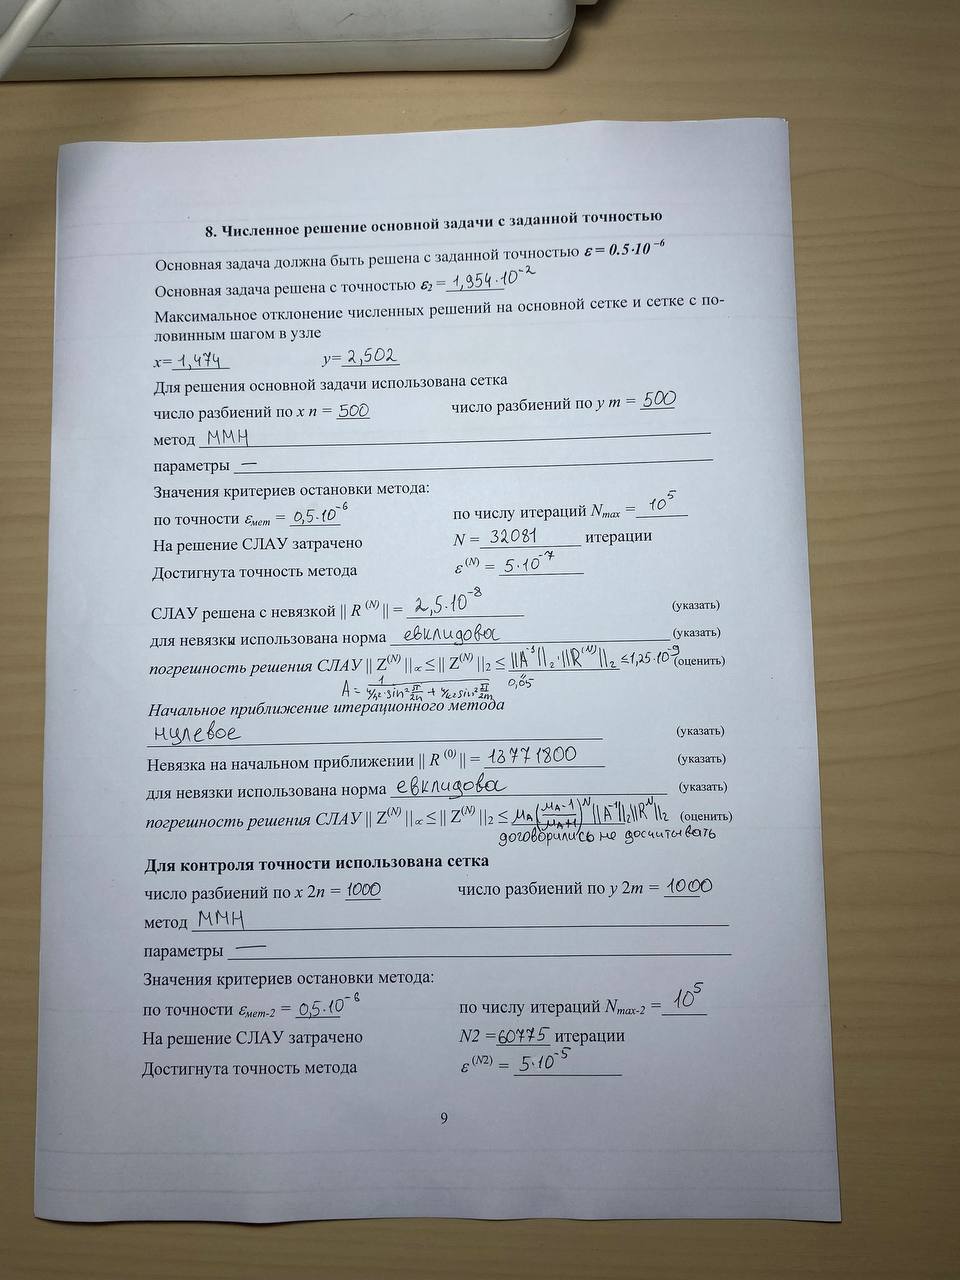 8. Численное решение основной задачи с заданной точностью
Основная задача должна быть решена с заданной точностью ε = 0.5·10⁻⁶
Основная задача решена с точностью ε₂ = 1,954·10⁻²
Максимальное отклонение численных решений на основной сетке и сетке с по-
ловинным шагом в узле
x= 1,474 y= 2,502
Для решения основной задачи использована сетка
число разбиений по x n = 500 число разбиений по y m = 500
метод ММН
параметры —
Значения критериев остановки метода:
по точности εмет = 0,5·10⁻⁶ по числу итераций Nmax = 10⁵
На решение СЛАУ затрачено N = 32081 итерации
Достигнута точность метода ε⁽ᴺ⁾ = 5·10⁻⁷
СЛАУ решена с невязкой || R ⁽ᴺ⁾ || = 2,5·10⁻⁸ (указать)
для невязки использована норма евклидова (указать)
погрешность решения СЛАУ || Z⁽ᴺ⁾ ||∞ ≤ || Z⁽ᴺ⁾ ||₂ ≤ ||A⁻¹||₂·||R⁽ᴺ⁾||₂ ≤ 1,25·10⁻⁹ (оценить)
A = 1/(4/h²·sin² π/2n + 4/k² sin² π/2m) 0,05
Начальное приближение итерационного метода
нулевое (указать)
Невязка на начальном приближении || R ⁽⁰⁾ || = 13771800 (указать)
для невязки использована норма евклидова (указать)
погрешность решения СЛАУ || Z⁽ᴺ⁾ ||∞ ≤ || Z⁽ᴺ⁾ ||₂ ≤ μA((μA-1)/(μA+1))ᴺ ||A⁻¹||₂||Rᴺ||₂ (оценить)
договорились не досчитывать
Для контроля точности использована сетка
число разбиений по x 2n = 1000 число разбиений по y 2m = 1000
метод ММН
параметры —
Значения критериев остановки метода:
по точности εмет-2 = 0,5·10⁻⁶ по числу итераций Nmax-2 = 10⁵
На решение СЛАУ затрачено N2 = 60775 итерации
Достигнута точность метода ε⁽ᴺ²⁾ = 5·10⁻⁵
9